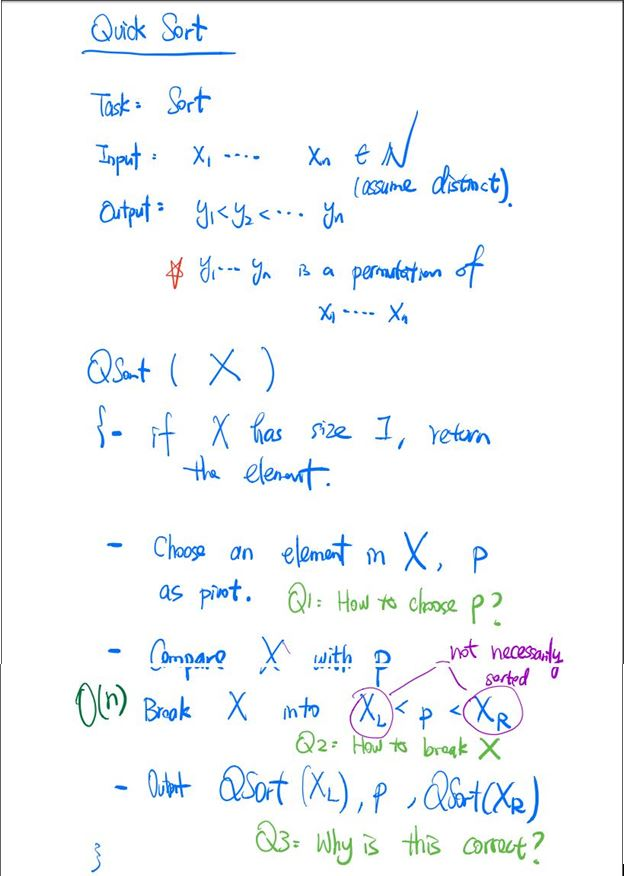 Quick Sort
Task: Sort
Input: x₁ ···· xₙ ∈ ℕ
(assume distinct).
Output: y₁ < y₂ < ··· yₙ
☆ y₁ ··· yₙ is a permutation of
x₁ ···· xₙ
QSort ( X )
{ - if X has size 1, return
the element.
- Choose an element in X, p
as pivot. Q1: How to choose p?
- Compare X with p
not necessarily
sorted
O(n) Break X into X_L < p < X_R
Q2: How to break X
- Output QSort(X_L), p, QSort(X_R)
Q3: Why is this correct?
}